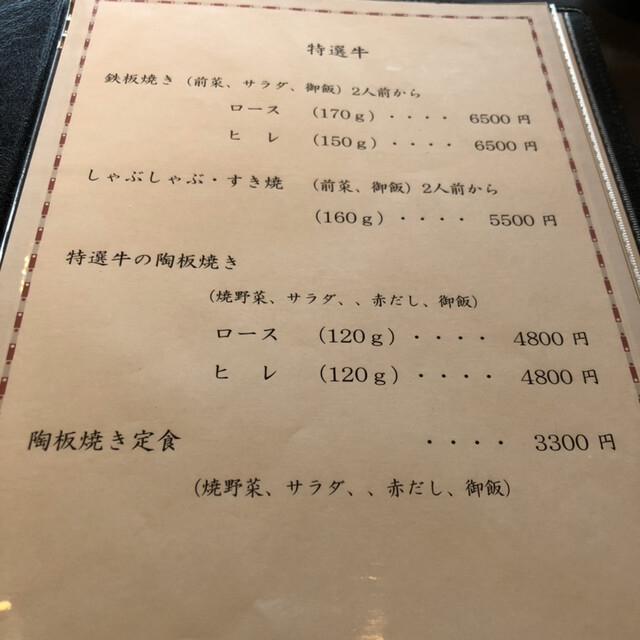 特選牛
鉄板焼き（前菜、サラダ、御飯）2人前から
ロース （170ｇ）・・・・ 6500 円
ヒレ （150ｇ）・・・・ 6500 円
しゃぶしゃぶ・すき焼 （前菜、御飯）2人前から
（160ｇ）・・・・ 5500 円
特選牛の陶板焼き
（焼野菜、サラダ、、赤だし、御飯）
ロース （120ｇ）・・・・ 4800 円
ヒ レ （120ｇ）・・・・ 4800 円
陶板焼き定食 ・・・・ 3300 円
（焼野菜、サラダ、、赤だし、御飯）